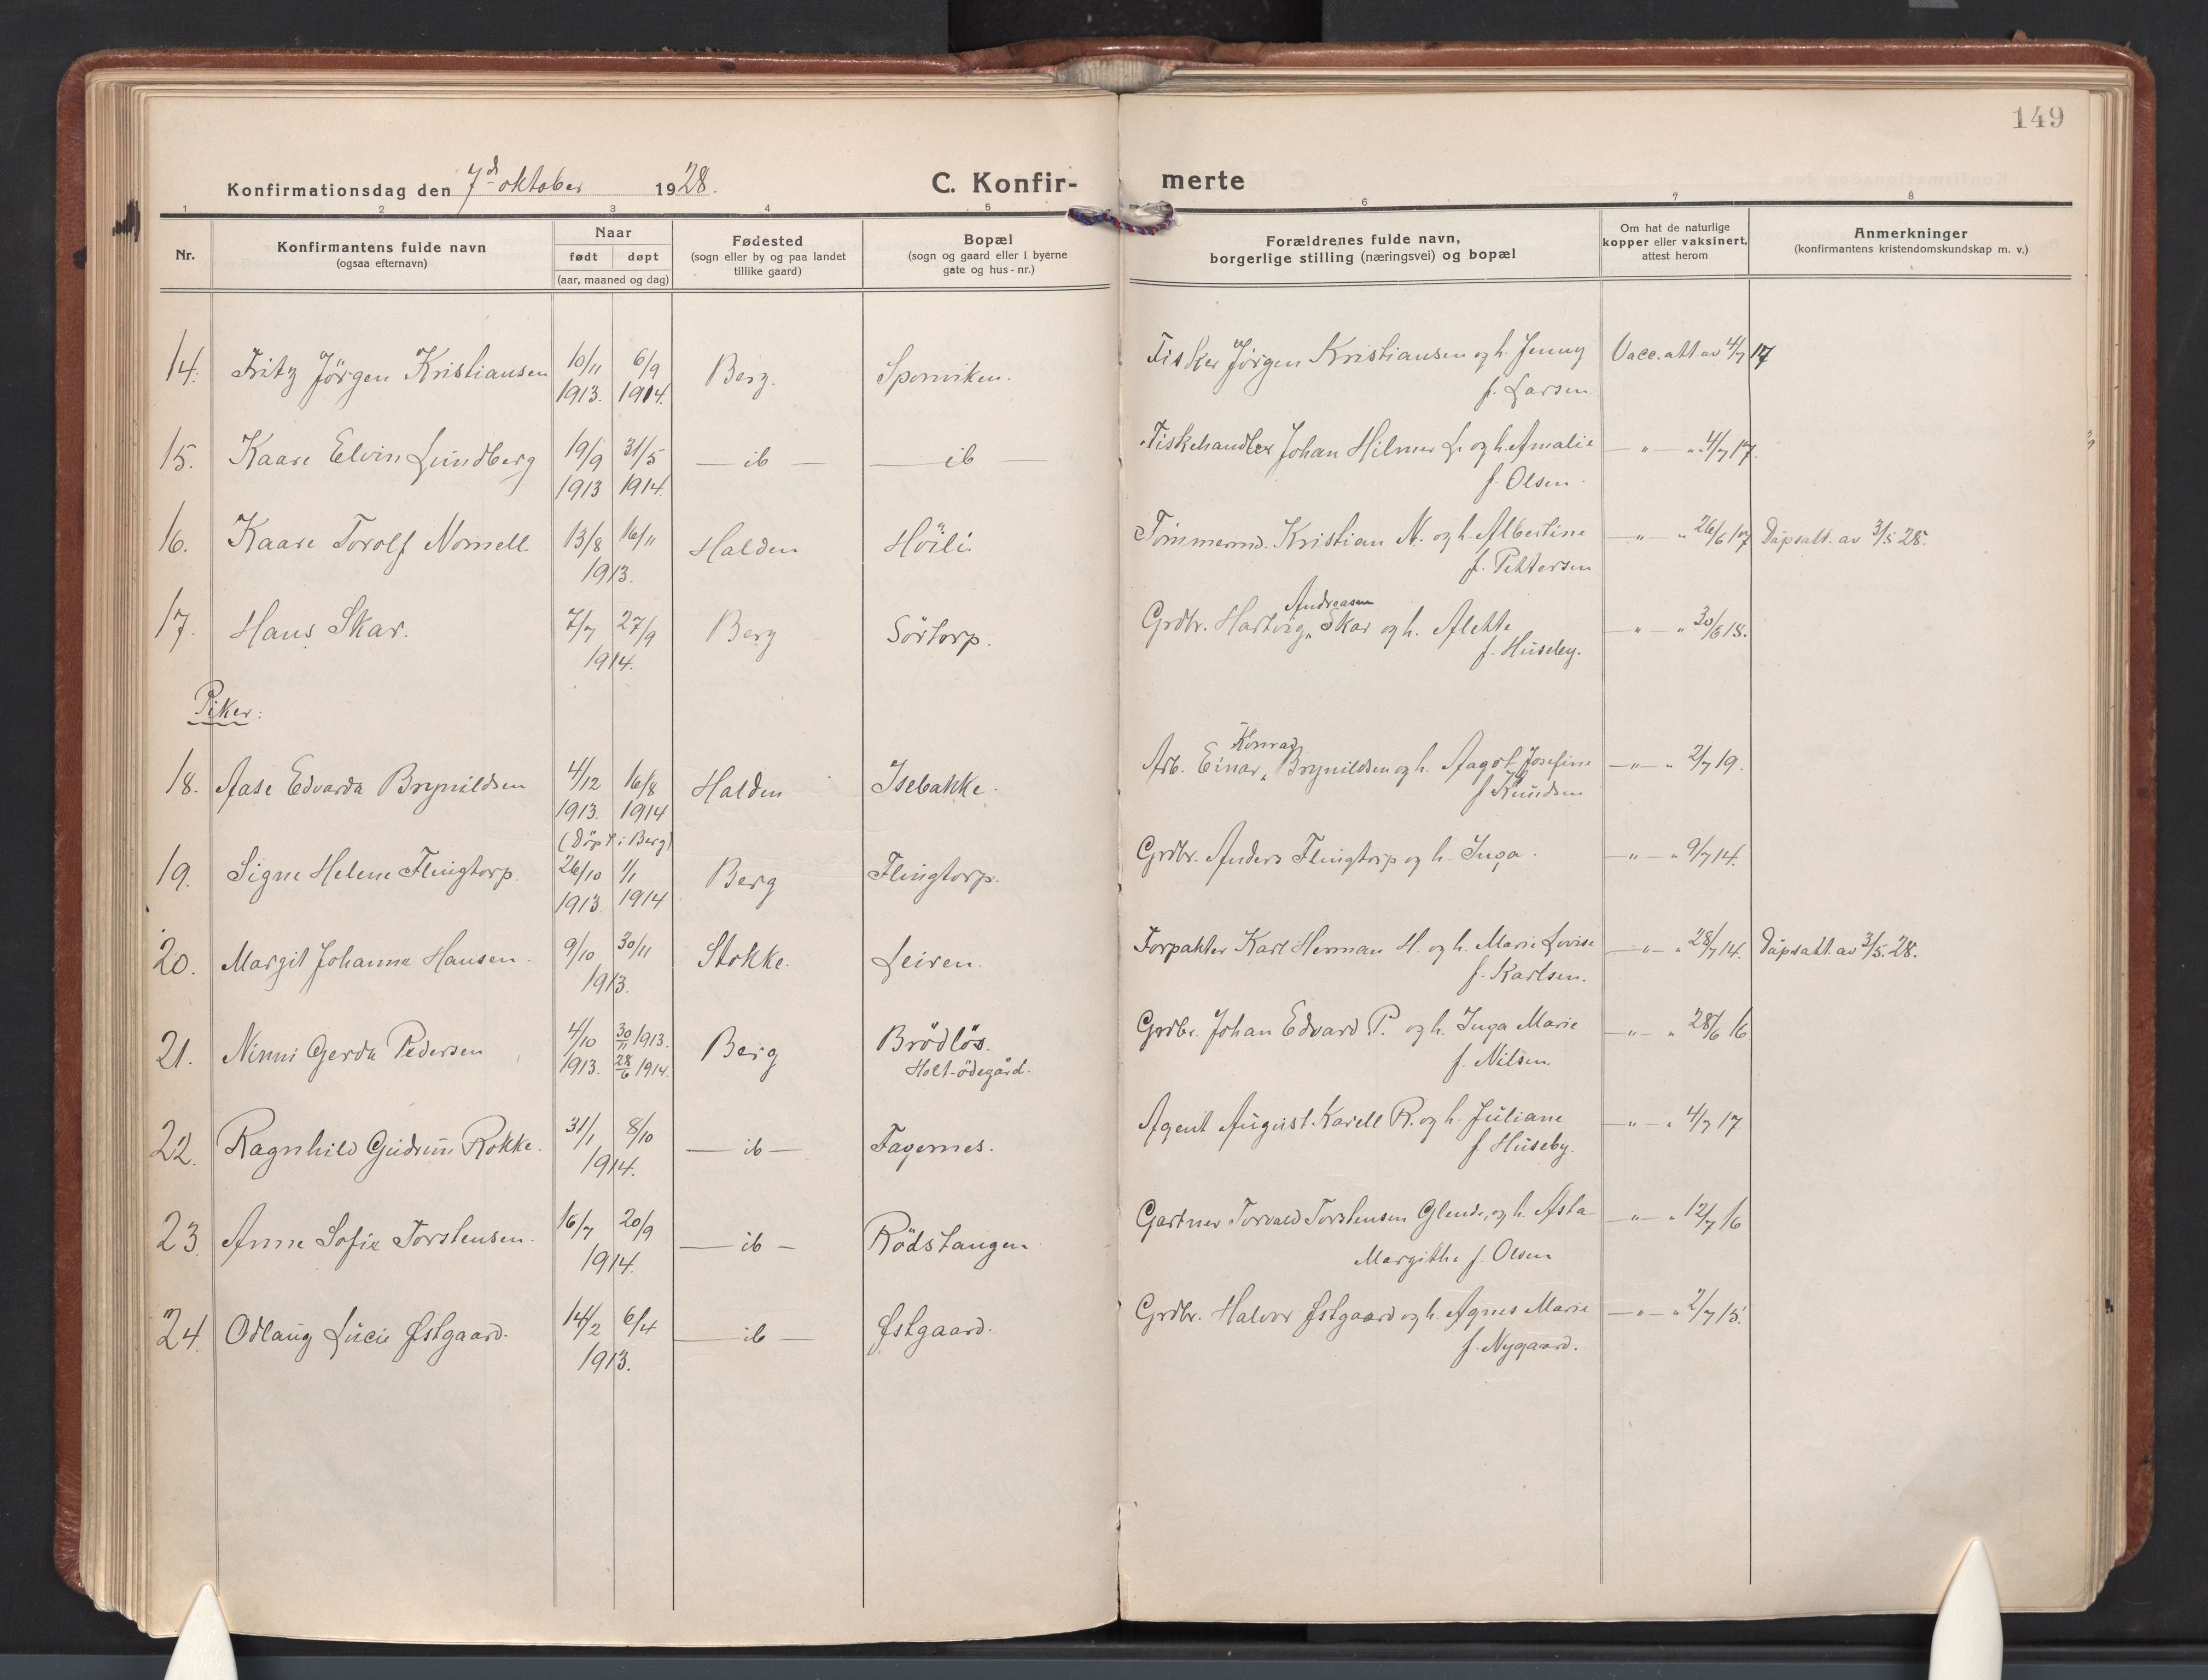 149
Konfirmationsdag den 7d oktober 1928.
C. Konfir-
merte
1 2 3 4 5 6 7 8
Nr.
Konfirmantens fulde navn
(ogsaa efternavn)
Naar
født døpt
(aar, maaned og dag)
Fødested
(sogn eller by og paa landet
tillike gaard)
Bopæl
(sogn og gaard eller i byerne
gate og hus-nr.)
Forældrenes fulde navn,
borgerlige stilling (næringsvei) og bopæl
Om hat de naturlige
kopper eller vaksinert,
attest herom
Anmerkninger
(konfirmantens kristendomskundskap m. v.)
14. Fritz Jörgen Kristiansen 10/11 6/9 Berg. Sponviken. Fisker Jörgen Kristiansen og h. Jenny Vacc. att av 4/7 17
1913. 1914. f. Larsen
15. Kaare Elvin Lundberg 19/9 31/5 — ib — — ib Fiskehandler Johan Hilmer L. og h. Amalie — " — " 4/7 17.
1913 1914. f. Olsen.
16. Kaare Torolf Nornell 13/8 16/11 Halden Höili. Tömmermd. Kristian N. og h. Albertine — " — " 26/6 17 Dåpsatt. av 3/5 28.
1913. f. Pettersen
17. Hans Skar. 7/7 27/9 Berg Sörtorp. Grdbr. Hartvig Andreasen Skar og h. Alette — " — " 30/6 18.
1914. f. Huseby.
Piker:
18. Aase Edvarda Brynildsen 4/12 16/8 Halden Isebakke. Arb. Einar Konrad Brynildsen og h. Aagot Josefine — " — " 2/7 19.
1913. 1914 f. Knudsen
(döpt i Berg)
19. Signe Helene Flingtorp. 26/10 1/1 Berg Flingtorp. Grdbr. Anders Flingtorp og h. Inga. — " — " 9/7 14.
1913. 1914
20. Margit Johanne Hansen. 9/10 30/11 Stokke. Leiren. Forpakter Karl Herman H. og h. Marie Lovise — " — " 28/7 14. Dåpsatt. av 3/5. 28.
1913. f. Karlsen.
21. Ninni Gerda Pedersen 4/10 30/11 1913. Berg Brödlös. Grdbr. Johan Edvard P. og h. Inga Marie — " — " 28/6 16
1913. 28/6 1914. Holt-ödegård. f. Nilsen.
22. Ragnhild Gudrun Rokke. 31/1 8/10 — ib — Fagernes. Agent August Karell R. og h. Juliane — " — " 4/7 17.
1914. f. Huseby.
23. Anne Sofie Torstensen. 16/7 20/9 — ib — Rödstangen Gartner Torvald Torstensen Glende, og h. Asta — " — " 12/7 16
1914. Margithe f. Olsen
24. Odlaug Lucie Østgaard. 14/2 6/4 — ib — Østgaard. Grdbr. Halvor Østgaard og h. Agnes Marie — " — " 2/7 15.
1913. f. Nygaard.